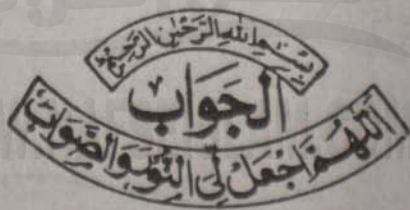 بِسْمِ اللهِ الرَّحْمٰنِ الرَّحِيْمِ
الجَوَابُ
اَللّٰهُمَّ اجْعَلْ لِّىَ النُّوْرَ وَالصَّوَابَ